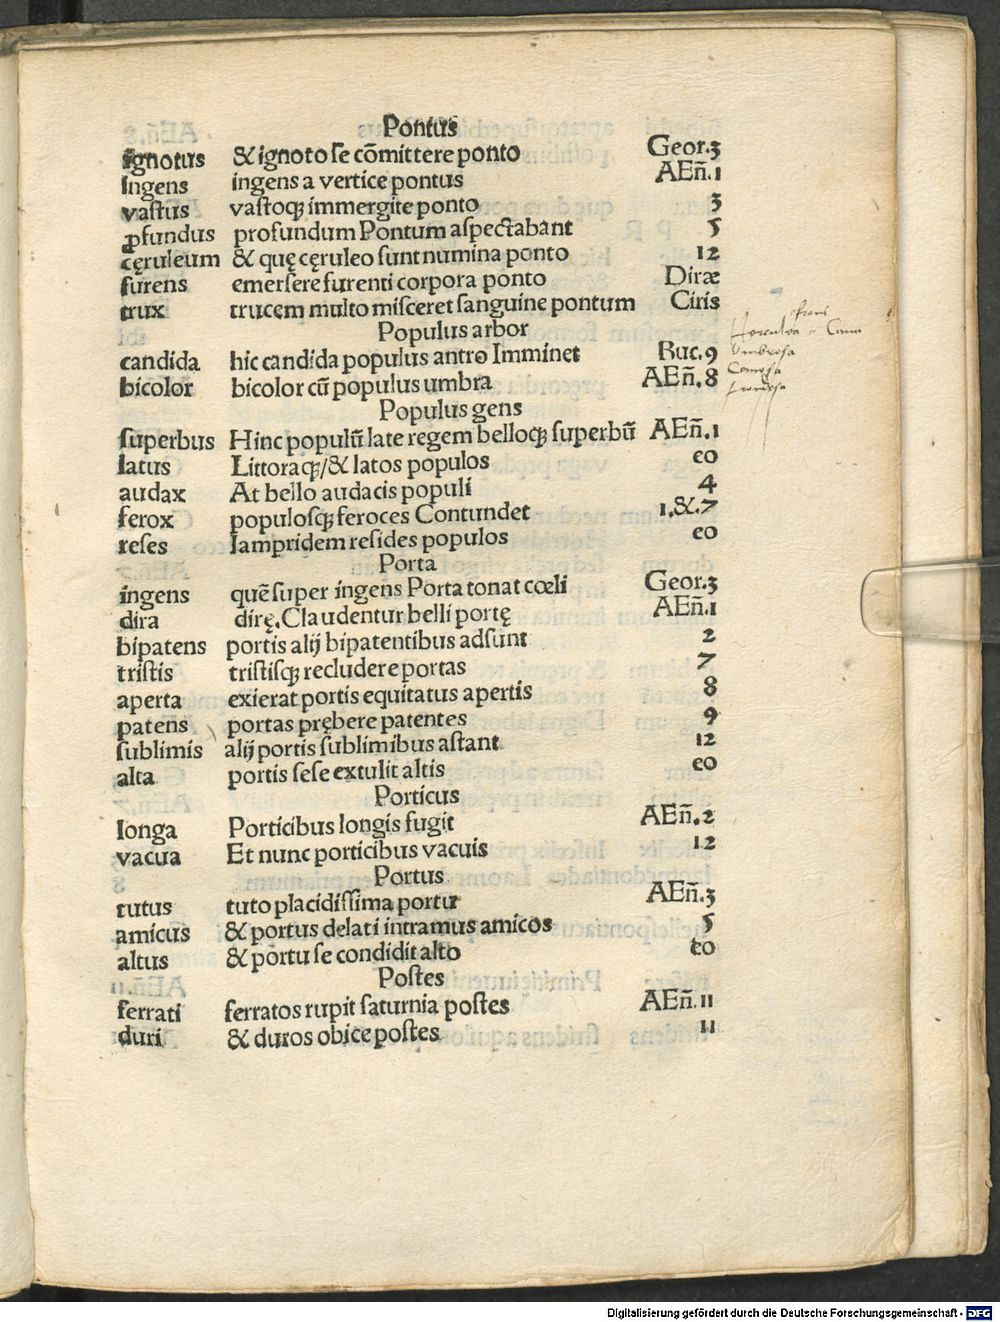 Pontus
Ignotus & ignoto se cōmittere ponto Geor.3
ingens ingens a vertice pontus AEñ.1
vastus vastoqꝫ immergite ponto 3
ꝓfundus profundum Pontum aspectabant 5
cęruleum & quę cęruleo sunt numina ponto 12
furens emersere furenti corpora ponto Diræ
trux trucem multo misceret sanguine pontum Ciris
Populus arbor
candida hic candida populus antro Imminet Buc.9
bicolor bicolor cū populus umbra AEñ.8
Umbrosa
Comosa
frondosa
Populus gens
superbus Hinc populū late regem belloqꝫ superbū AEñ.1
latus Littoraqꝫ/& latos populos eo
audax At bello audacis populi 4
ferox populosqꝫ feroces Contundet 1.&.7
reses Iampridem resides populos eo
Porta
ingens quē super ingens Porta tonat cœli Geor.3
dira dirę. Claudentur belli portę AEñ.1
bipatens portis alij bipatentibus adsunt 2
tristis tristisqꝫ recludere portas 7
aperta exierat portis equitatus apertis 8
patens portas prębere patentes 9
sublimis alij portis sublimibus astant 12
alta portis sese extulit altis eo
Porticus
longa Porticibus longis fugit AEñ.2
vacua Et nunc porticibus vacuis 12
Portus
tutus tuto placidissima portu AEñ.3
amicus & portus delati intramus amicos 5
altus & portu se condidit alto eo
Postes
ferrati ferratos rupit saturnia postes AEñ.11
duri & duros obice postes 11
Digitalisierung gefördert durch die Deutsche Forschungsgemeinschaft - DFG